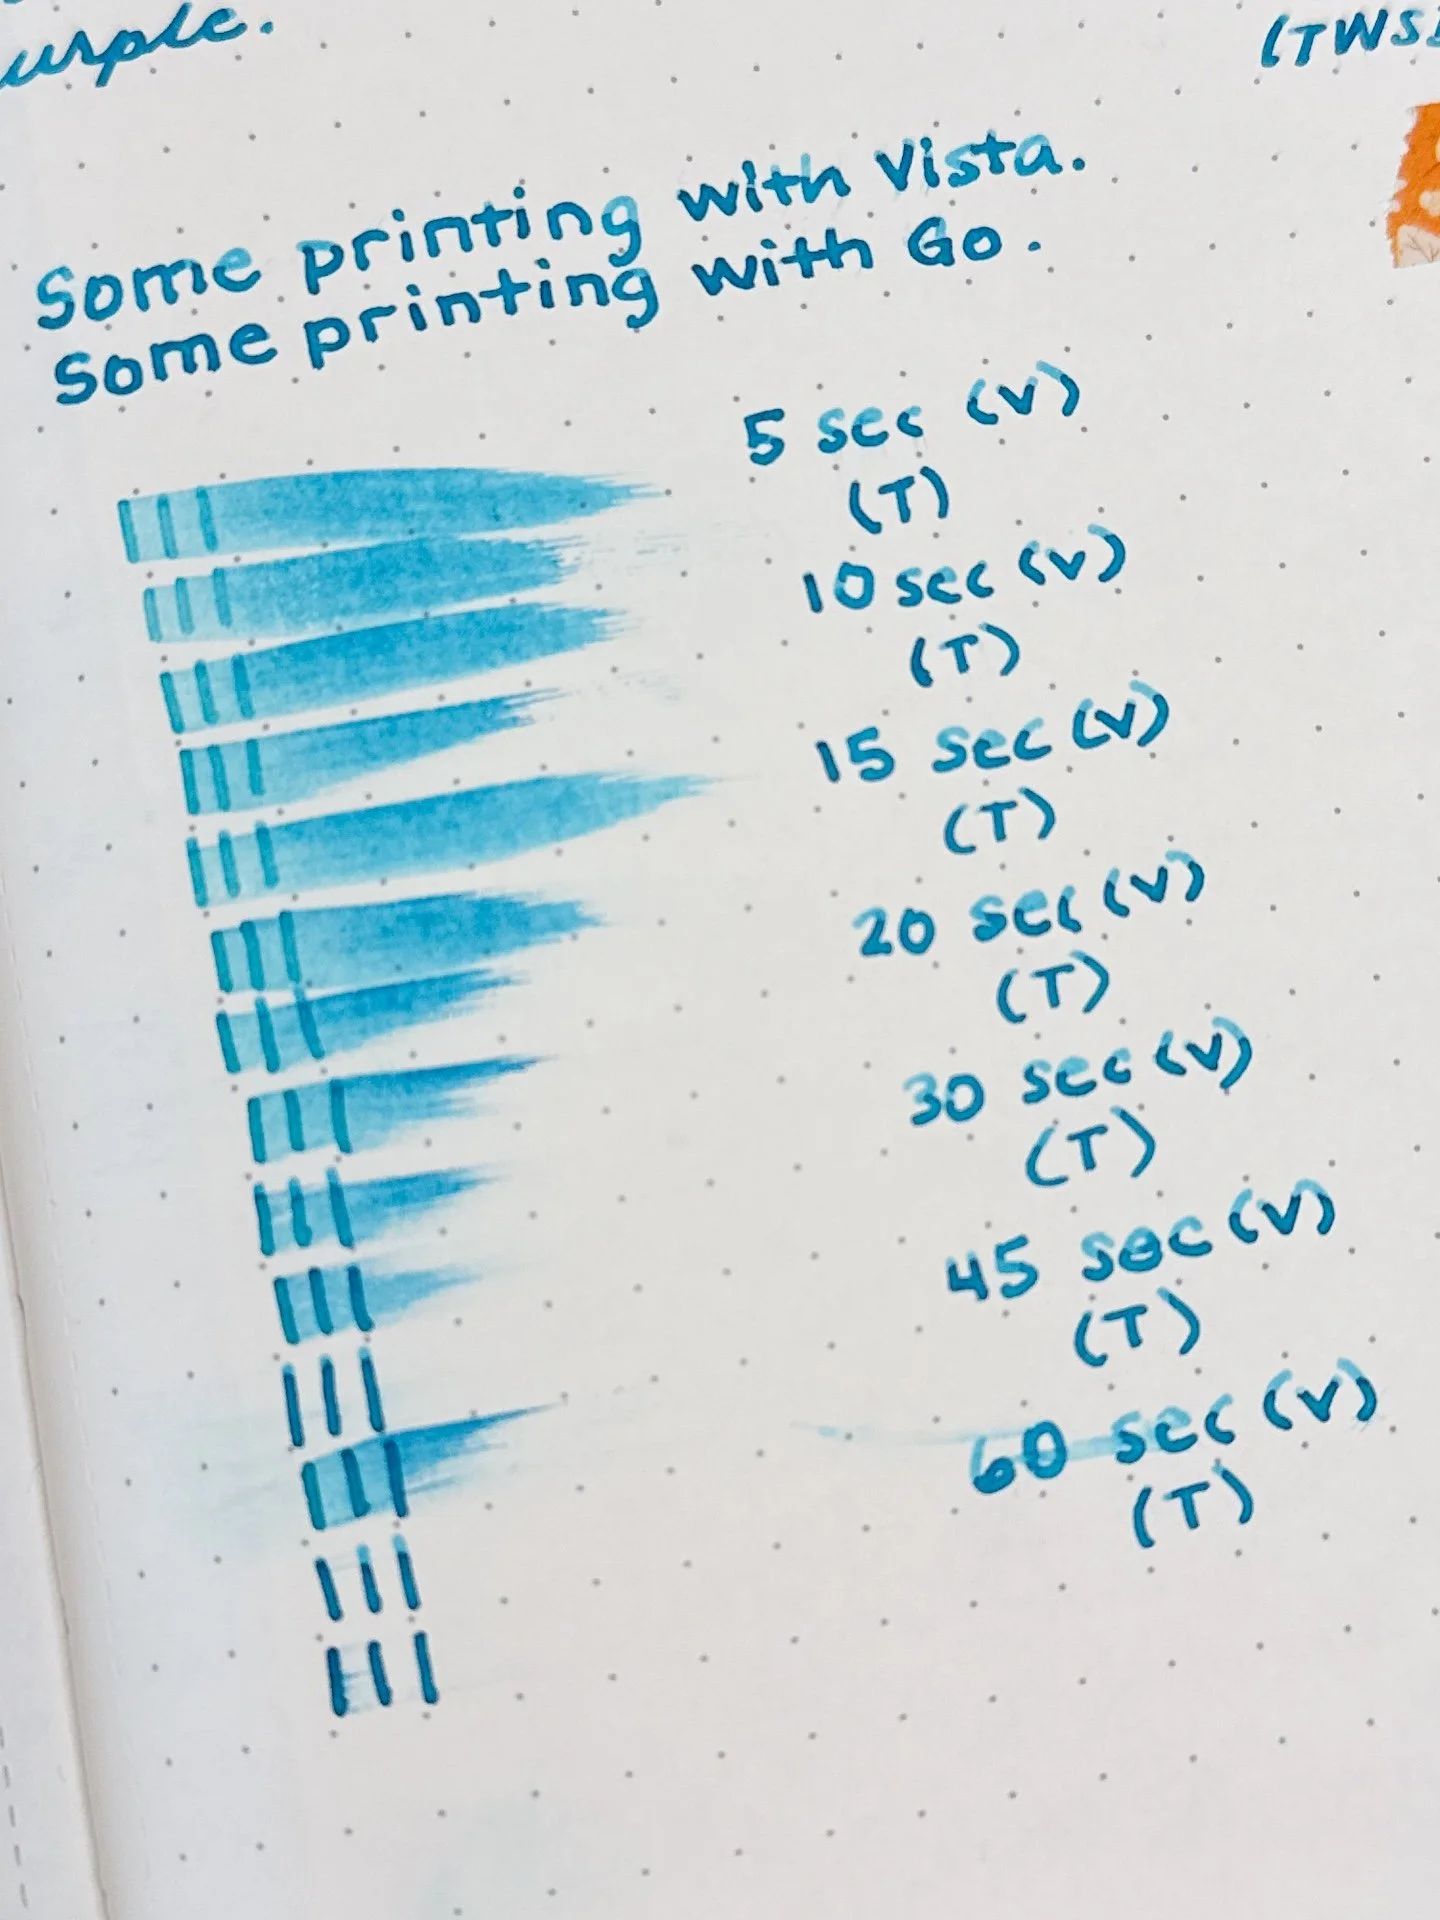 (TWS
Some printing with Vista.
Some printing with Go.
5 sec (V)
(T)
10 sec (V)
(T)
15 sec (V)
(T)
20 sec (V)
(T)
30 sec (V)
(T)
45 sec (V)
(T)
60 sec (V)
(T)